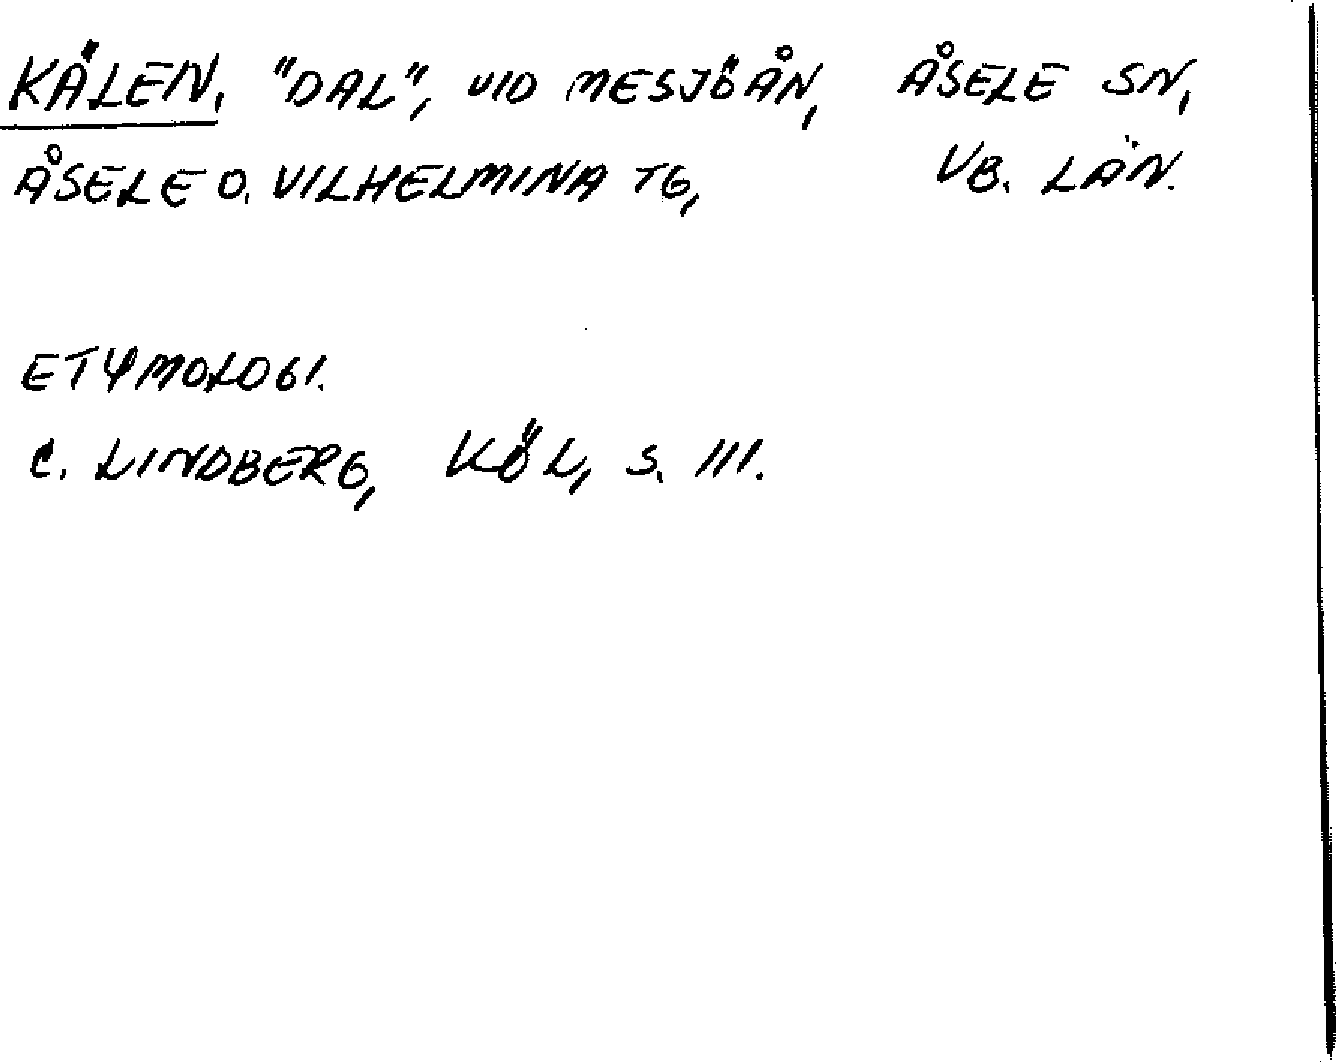 KÄLEN, "DAL", VID MESJÖÅN, ÅSELE SN,
ÅSELE O. VILHELMINA TG, VB. LÄN.
ETYMOLOGI.
C. LINDBERG, KÖL, S. 111.